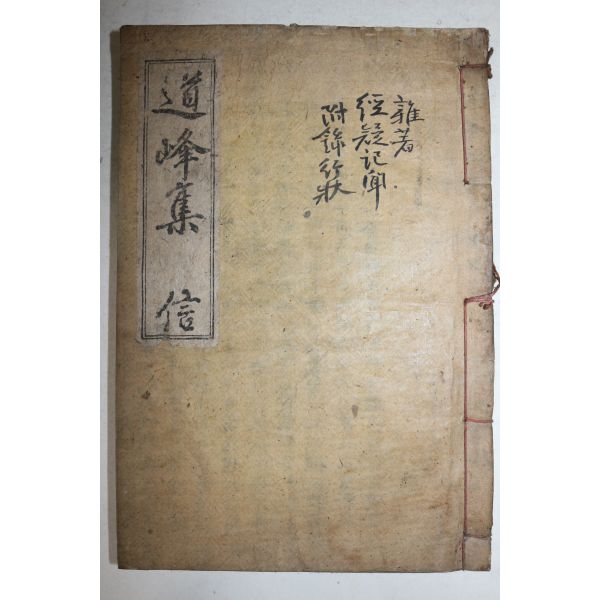 道峰集 信
雜著
經疑記聞
附錄行狀